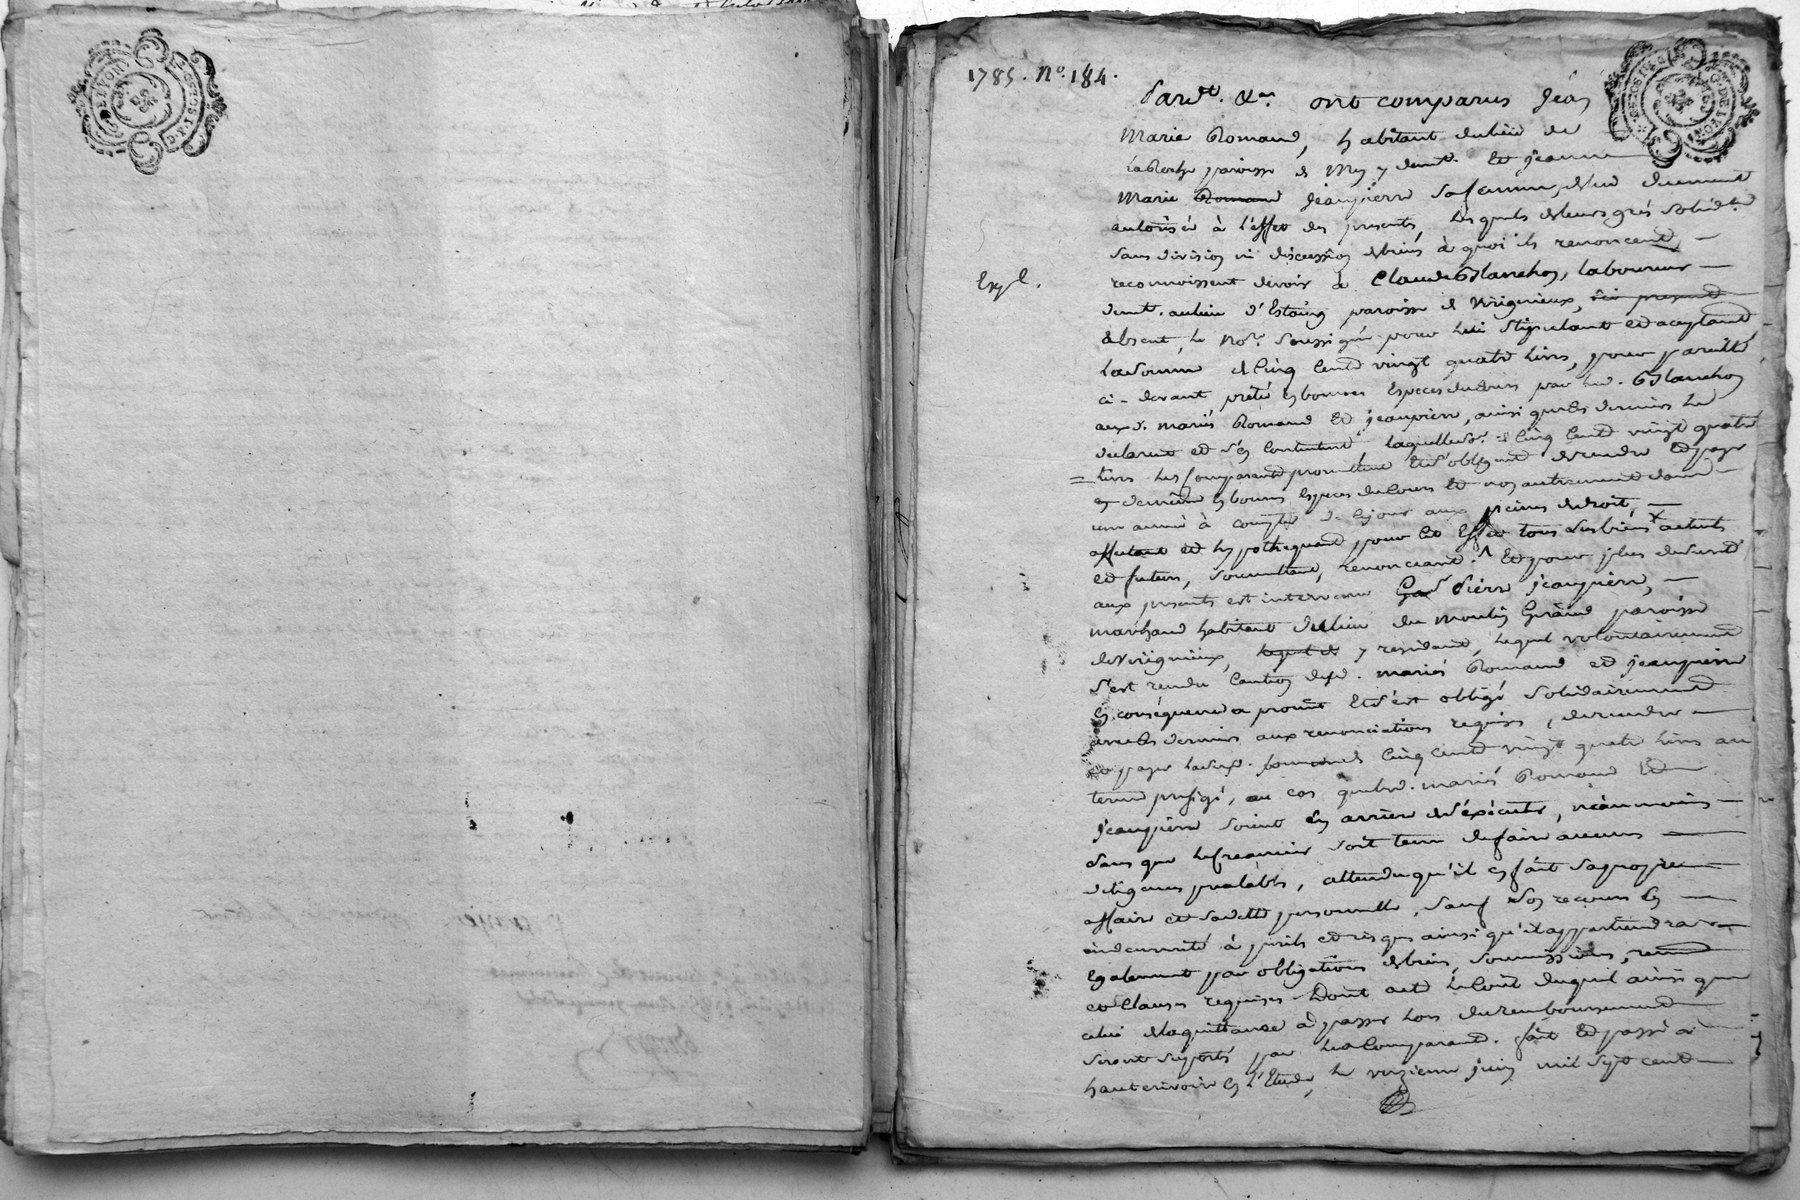 1785. No. 184.
Pard.t &a. ont comparus Jean
Marie Romand, habitant du lieu de
la Roche paroisse de y demt. Et jeanne
Marie Romand jeanpierre sa femme, de lui duement
autorisée à l'effet des presents, lesquels de leurs grés solid.t
sans division ni discussion de biens à quoi ils renoncent,
reconnoissent devoir à Claude Blanchon, laboureur
Expé.
demt. au lieu d'Estaing paroisse de Verrignieux, ici present
absent, le No.re soussigné pour lui stipulant et aceptant,
la somme de Cinq Cents vingt quatre livres, pour pareille
ci-devant prêtée en bonnes Especes du Cours par led. Blanchon
aux d. mariés Romand Et jeanpierre, ainsi que les derniers le
declarent et s'en Contentent laquelle de Cinq Cents vingt quatre
livres les Comparants promettent Et s'obligent de rendre Et payer
en deniers en bonnes Especes du Cours Et non autrement dans
un année à compter de ce jour aux peines de droit,
affectant et hypothequant pour cet Effet tous leurs biens actuels
et futurs, soumettant, renonceant. Et pour plus de sureté
aux presents est intervenu Pierre jeanpierre,
marchand habitant du lieu du moulin Gérand paroisse
de Verrignieux, lequel y residant, lequel volontairement
s'est rendu Caution desd. mariés Romand et jeanpierre
En consequence a promit Et s'est obligé solidairement
avec les derniers aux renonciations requises, de rendre
et payer lad. somme de Cinq Cents vingt quatre livres au
terme prefigé, au cas que lesd. mariés Romand Et
jeanpierre soient En arriere de s'executer, néanmoins
sans que le Creancier soit tenu de faire aucunes
diligences préalables, attendu qu'il en fait sa propre
affaire et sa dette personnelle, sauf son recours En
indemnité à perils et risques ainsi qu'il appartiendra
Egalement par obligations de biens, soumissions, renon.
et Clauses requises. Dont acte le Coût duquel ainsi que
celui de la quittance à passer lors du remboursement
seront suportés par les Comparants. fait Et passé à
hauterivoire En l'Etude, le onzieme juin mil sept cent